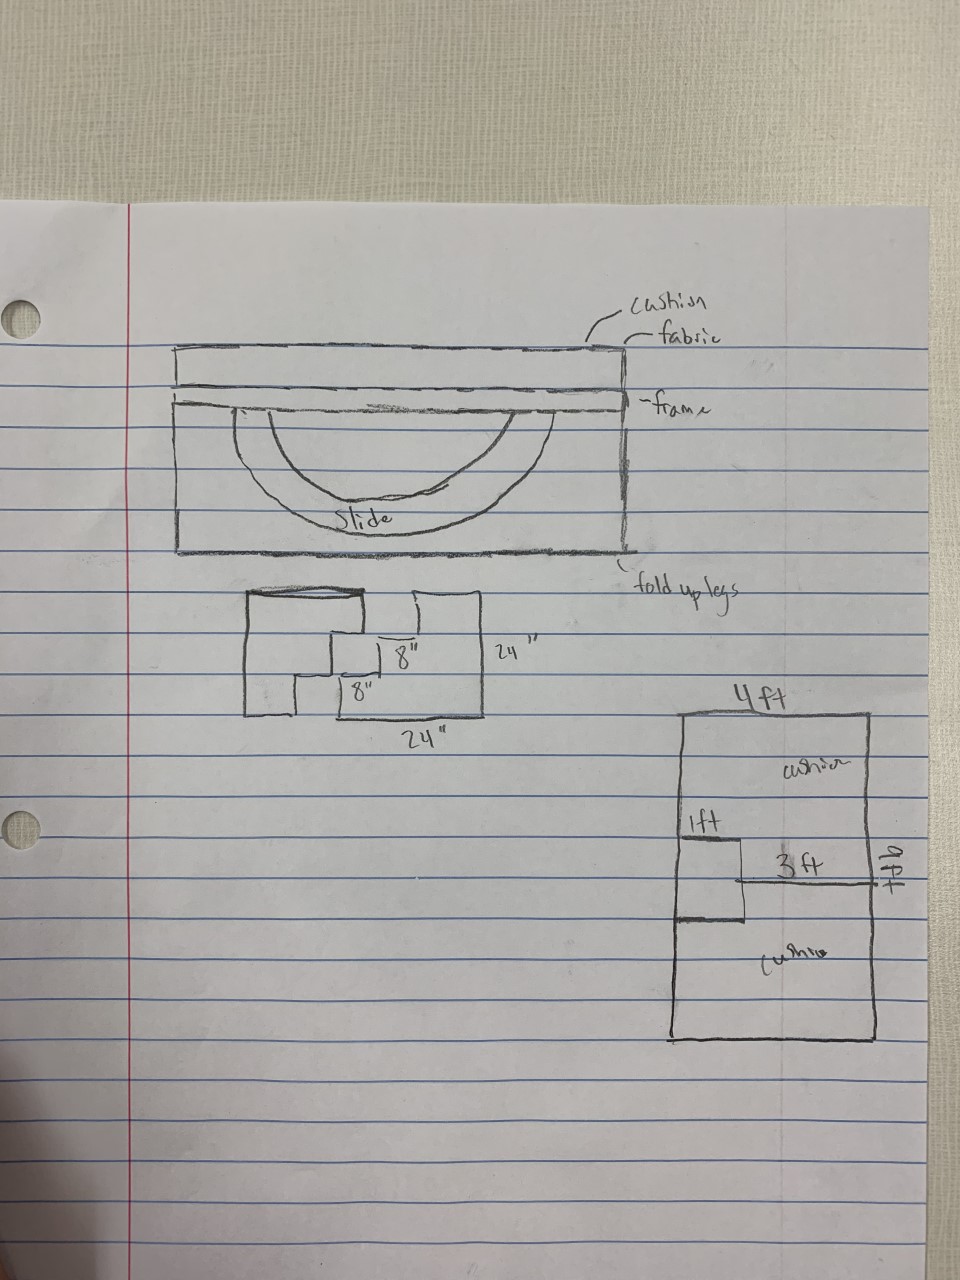 cushion
fabric
frame
Slide
fold up legs
8"
24"
8"
24"
4 ft
cushion
1ft
3 ft
9ft
cushion